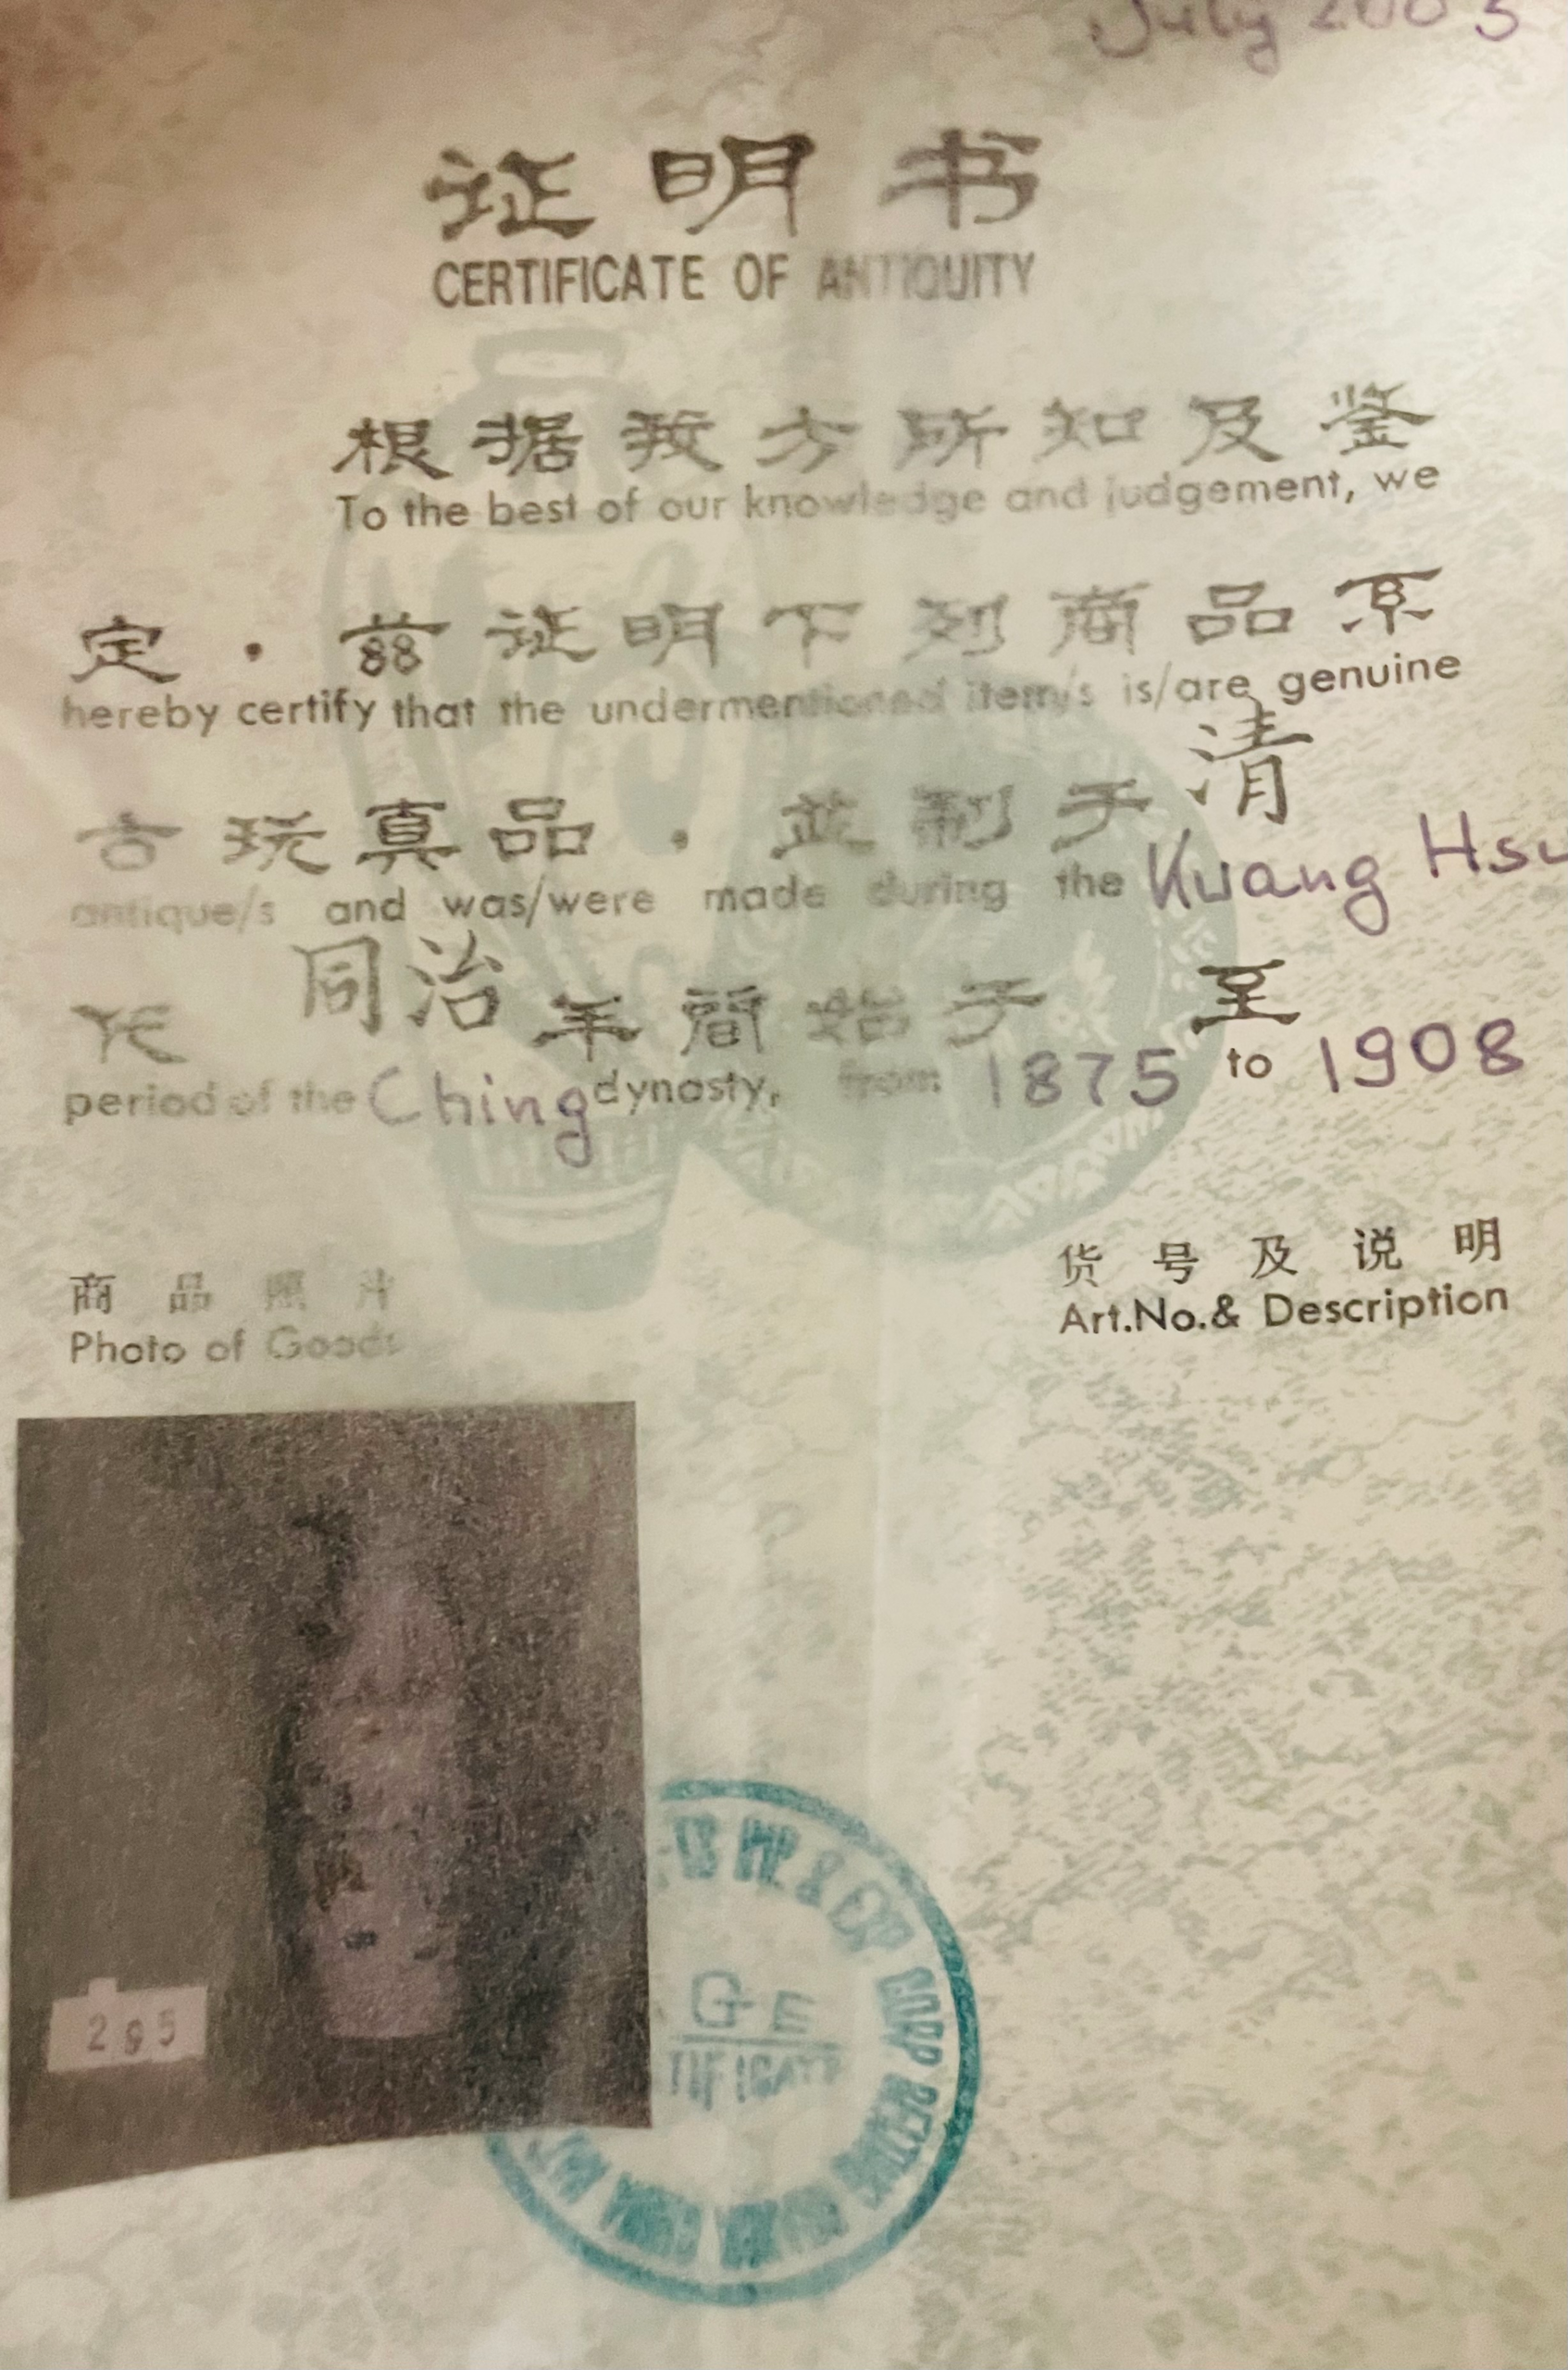 July 2005
证明书
CERTIFICATE OF ANTIQUITY
根据我方所知及鉴
To the best of our knowledge and judgement, we
定·兹证明下列商品系
hereby certify that the undermentioned item/s is/are genuine
古玩真品·並制于清
antique/s and was/were made during the Kuang Hsu
代 同治 年间始于 至
period of the Ching dynasty, from 1875 to 1908
商品照片
Photo of Goods
货号及说明
Art.No.& Description
295
CORP BEIJING
CHINA